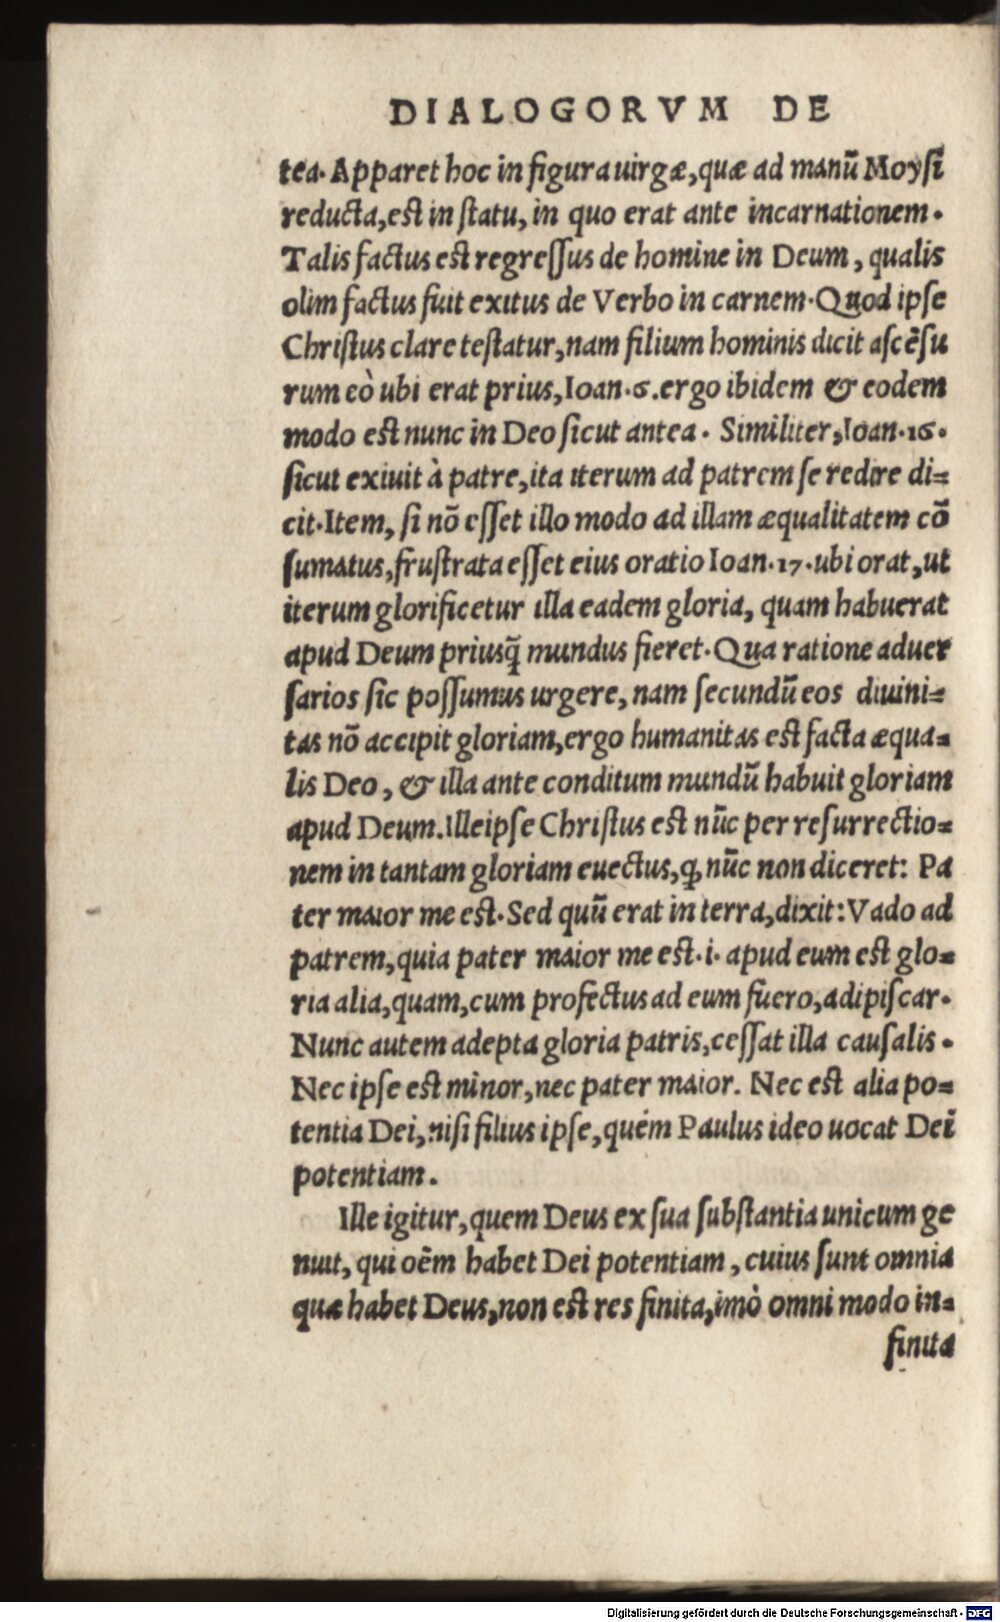 DIALOGORVM DE
tea. Apparet hoc in figura uirgæ, quæ ad manū Moysi
reducta, est in statu, in quo erat ante incarnationem.
Talis factus est regressus de homine in Deum, qualis
olim factus fuit exitus de Verbo in carnem. Quod ipse
Christus clare testatur, nam filium hominis dicit ascēsu
rum eò ubi erat prius, Ioan. 6. ergo ibidem & eodem
modo est nunc in Deo sicut antea. Similiter, Ioan. 16.
sicut exiuit à patre, ita iterum ad patrem se redire di=
cit. Item, si nō esset illo modo ad illam æqualitatem cō
sumatus, frustrata esset eius oratio Ioan. 17. ubi orat, ut
iterum glorificetur illa eadem gloria, quam habuerat
apud Deum priusq̄ mundus fieret. Qua ratione aduer
sarios sic possumus urgere, nam secundū eos diuini=
tas nō accipit gloriam, ergo humanitas est facta æqua=
lis Deo, & illa ante conditum mundū habuit gloriam
apud Deum. Ille ipse Christus est nūc per resurrectio=
nem in tantam gloriam euectus, ꝙ nūc non diceret: Pa
ter maior me est. Sed quū erat in terra, dixit: Vado ad
patrem, quia pater maior me est. i. apud eum est glo=
ria alia, quam, cum profectus ad eum fuero, adipiscar.
Nunc autem adepta gloria patris, cessat illa causalis.
Nec ipse est minor, nec pater maior. Nec est alia po=
tentia Dei, nisi filius ipse, quem Paulus ideo uocat Dei
potentiam.
Ille igitur, quem Deus ex sua substantia unicum ge
nuit, qui oēm habet Dei potentiam, cuius sunt omnia
quæ habet Deus, non est res finita, imò omni modo in=
finita
Digitalisierung gefördert durch die Deutsche Forschungsgemeinschaft - DFG